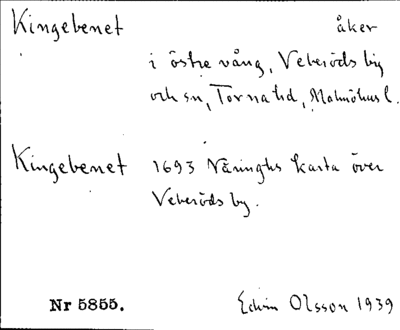 Kingebenet åker
i östre vång, Veberöds by
och sn, Torna hd, Malmöhus l.
Kingebenet 1693 Næringhs karta över
Veberöds by.
Nr 5855. Edvin Olsson 1939